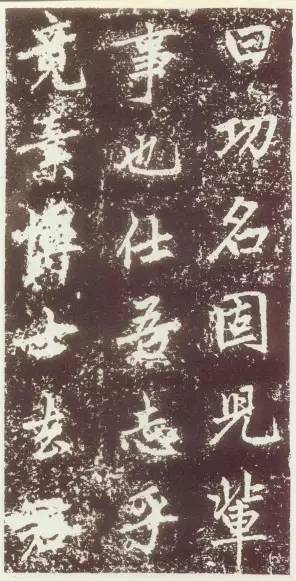 曰功名固兒輩
事也仕吾志乎
竟棄博士去